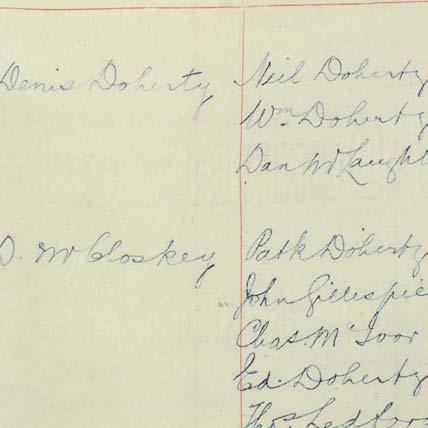 Denis Doherty Neil Doherty
Wm Doherty
Dan McLaughl
D. McCloskey Patk Doherty
John Gillespie
Chas. McIvor
Ed. Doherty
Thos.